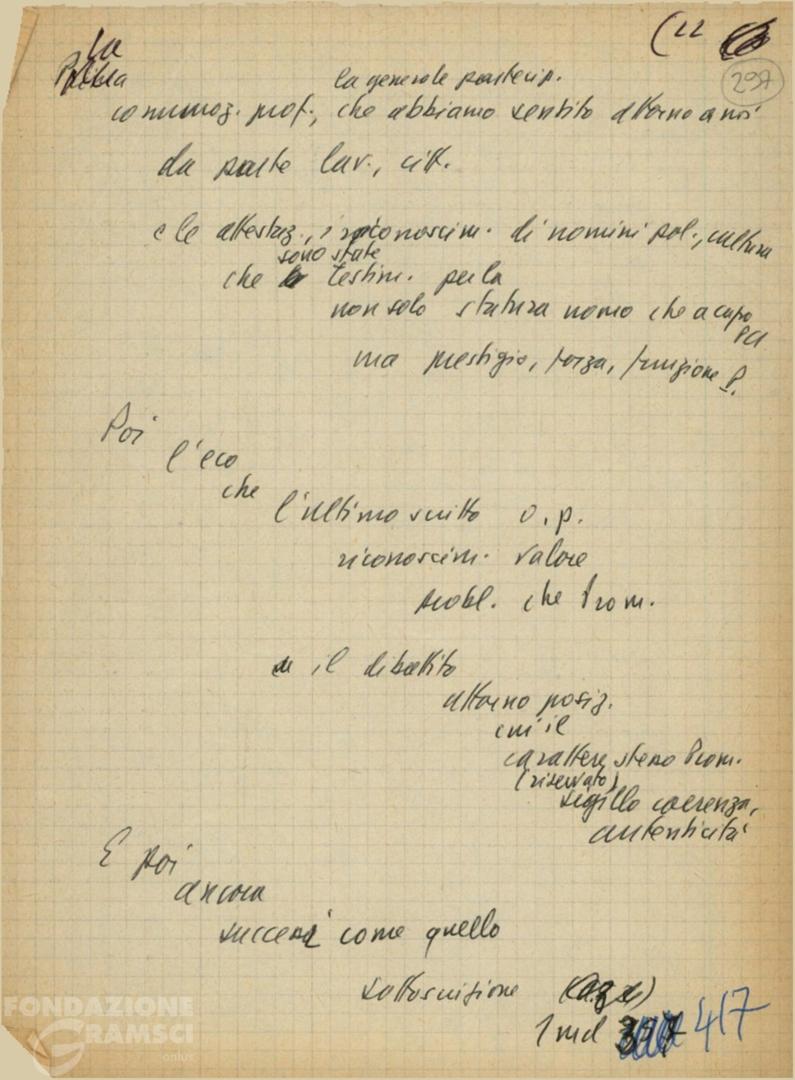 (22
297
La
la generale partecip.
commoz. prof., che abbiamo sentito attorno a noi
da parte lav., citt.
e le attestaz., i riconoscim. di uomini pol., cultura
sono state
che testim. per la
non solo statura uomo che a capo
PCI
ma prestigio, forza, funzione P.
Poi
l'eco
che
l'ultimo scritto o.p.
riconoscim. valore
probl. che Prom.
il dibattito
attorno posiz.
cui il
carattere stesso Prom.
(riservato)
sigillo coerenza,
autenticità
E poi
ancora
successi come quello
sottoscrizione
1 mld 417
FONDAZIONE
GRAMSCI
onlus